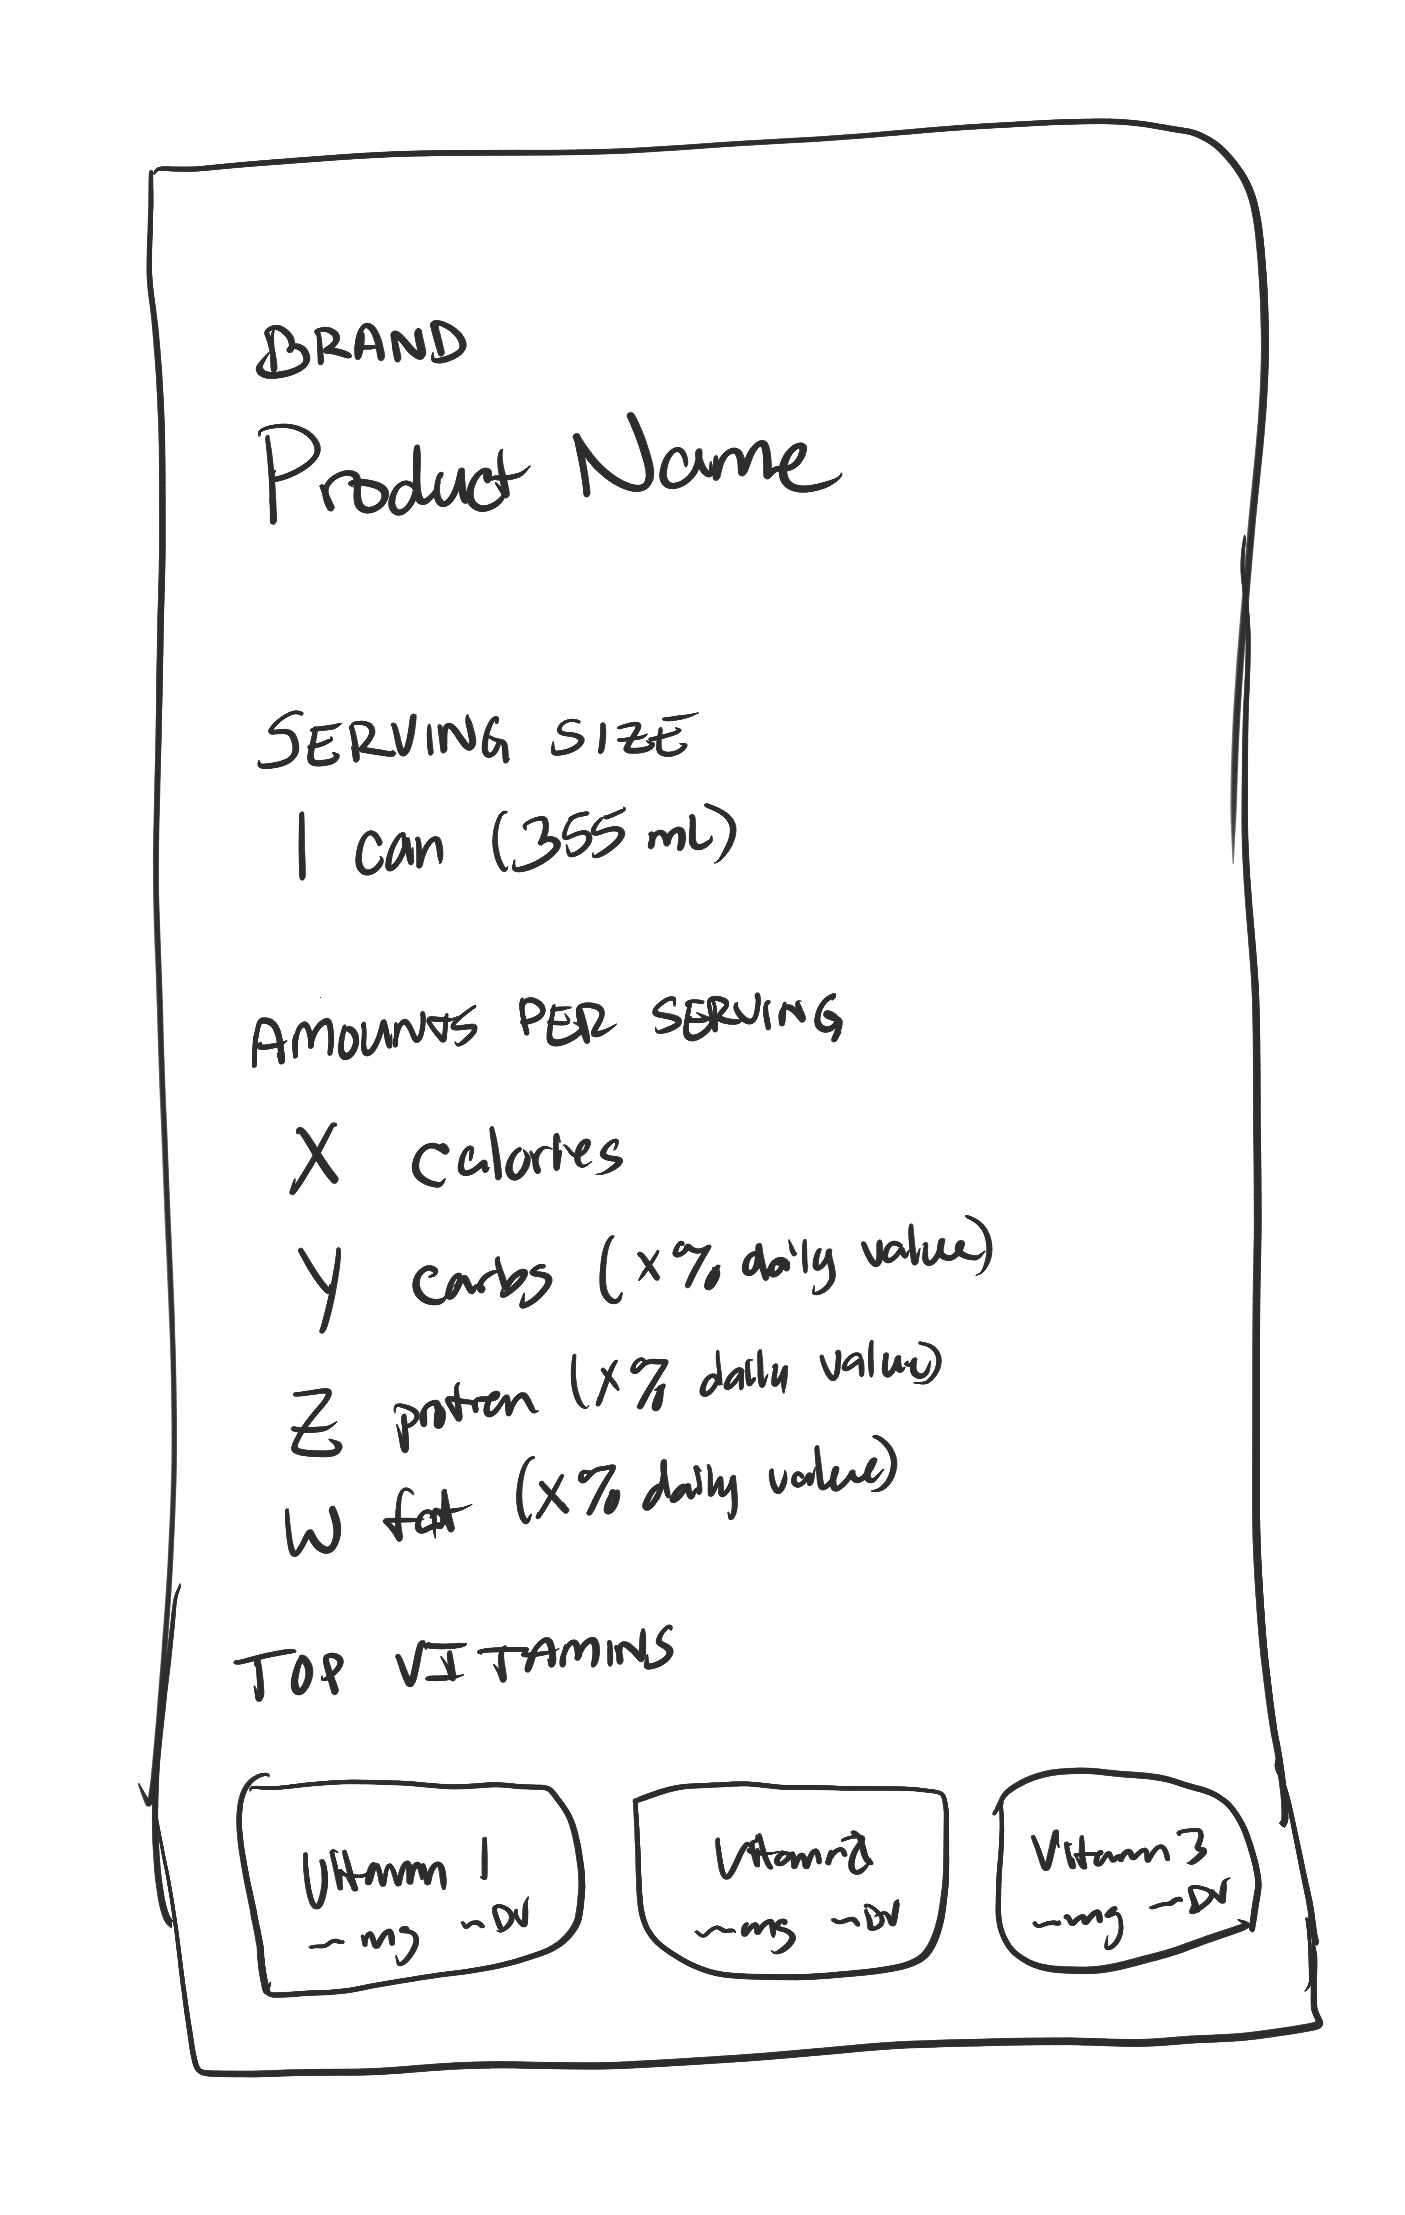 BRAND
Product Name
SERVING SIZE
1 can (355 mL)
AMOUNTS PER SERVING
X calories
Y carbs (X% daily value)
Z protein (X% daily value)
W fat (X% daily value)
TOP VITAMINS
Vitamin 1
~ mg ~DV
Vitamin 2
~mg ~DV
Vitamin 3
~mg ~DV